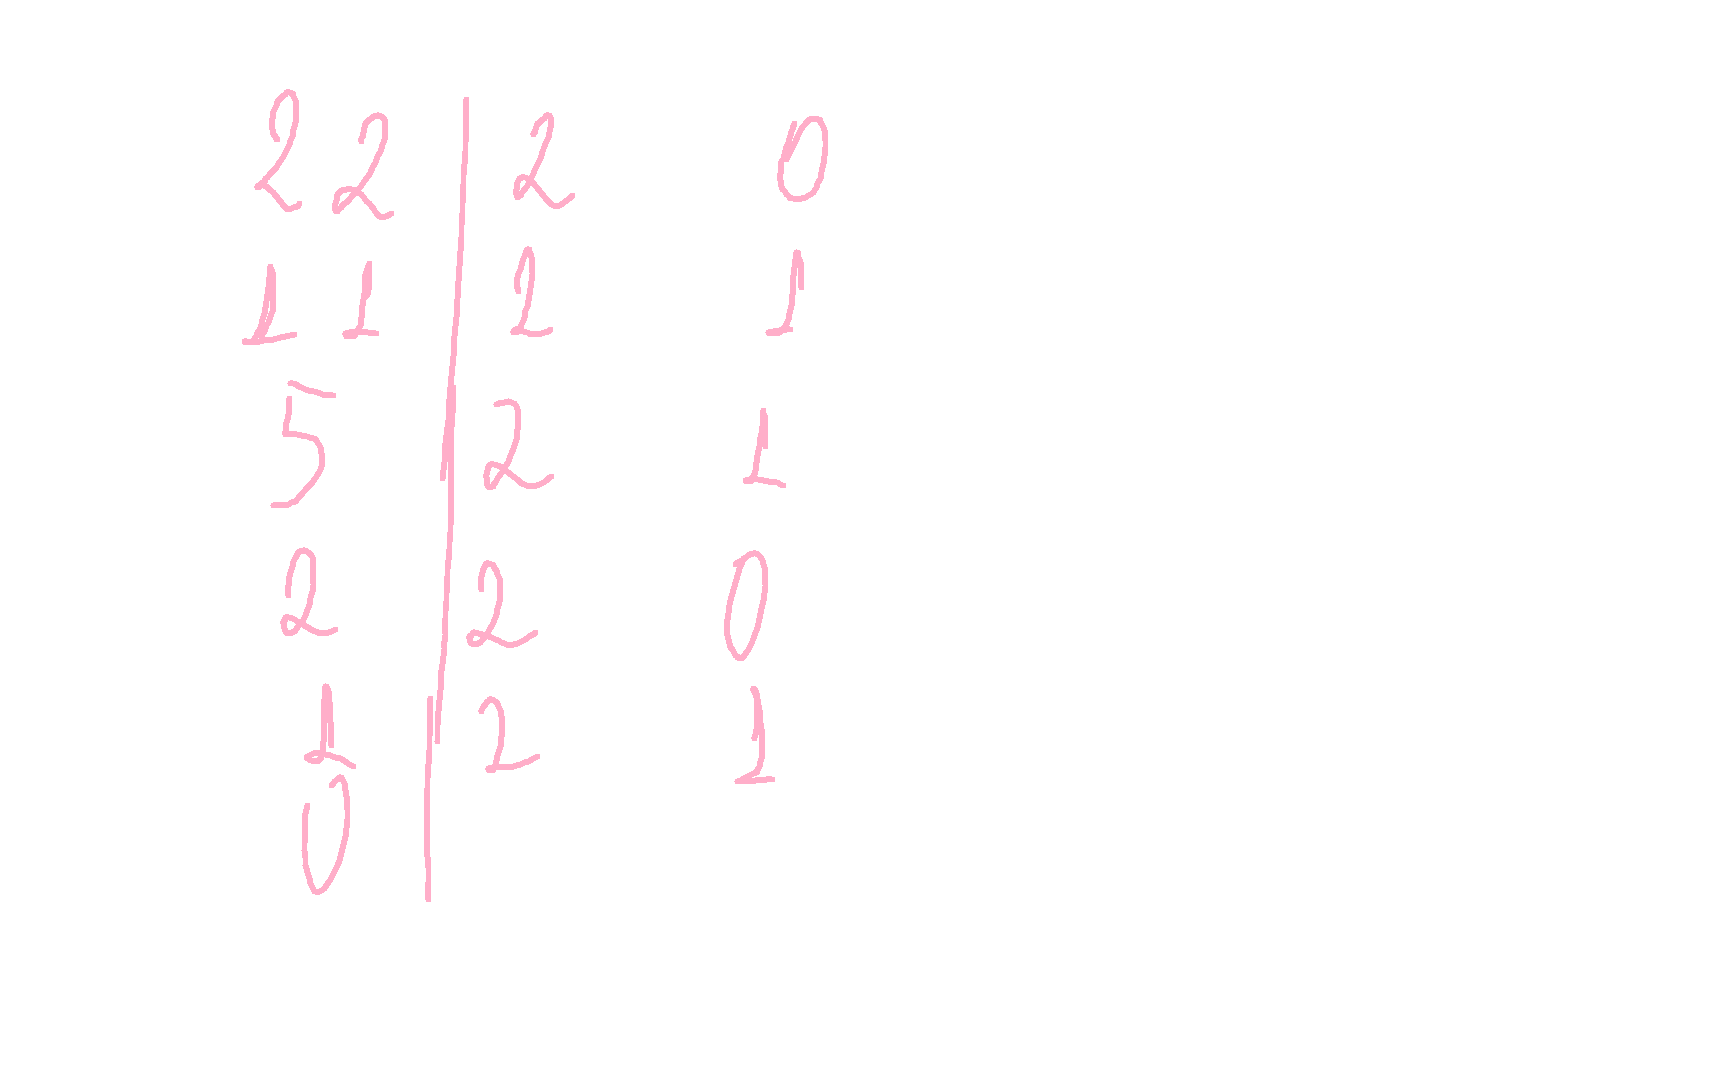 22 | 2 0
11 | 2 1
5 | 2 1
2 | 2 0
1 | 2 1
0 |